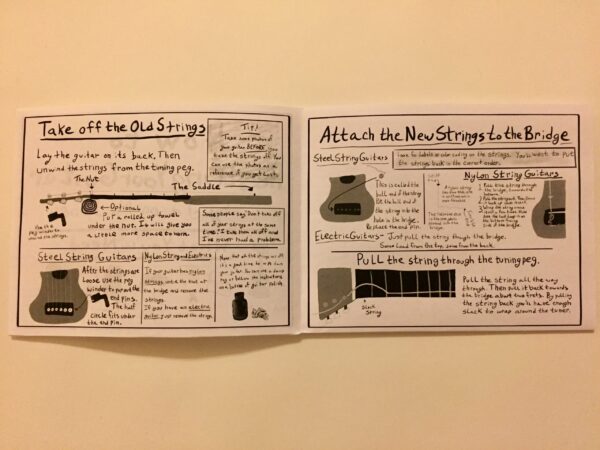 Take off the Old Strings
Lay the guitar on its back, Then
unwind the strings from the tuning peg.
The Nut
The Saddle
Optional
Put a rolled up towel
under the nut. It will give you
a little more space to work.
Use the
peg winder to
unwind the strings.
Tip!
Take some photos of
your guitar BEFORE you
take the strings off. You
can use the photos as a
reference if you get lost.
Some people say, Don't take off
all of your strings at the same
time. I've done it and
I've never had a problem.
Steel String Guitars
After the strings are
loose use the peg
winder to remove the
end pins.
The half
circle fits under
the end pin.
Nylon String and Electrics
If your guitar has nylon
strings, untie the knot at
the bridge and remove the
strings.
If you have an electric
guitar, just remove the strings.
Now that all the strings are off
it's a good time to
your guitar. You can use a damp
rag or follow the instructions
on a bottle of guitar polish.
Attach the New Strings to the Bridge
Steel String Guitars
Look for labels or color coding on the strings. You'll want to put
the strings back in the correct order.
This is called the
ball end of the string
Put the ball end of
the string into the
hole in the bridge.
Replace the end pin.
Nylon String Guitars
1 Pull the string through
the bridge,
Electric Guitars - Just pull the string though the bridge.
Some load from the top, some from the back.
Pull the string through the tuning peg.
Slack
String
Pull the string all the way
through. Then pull it back towards
the bridge about two frets. By pulling
the string back you'll have enough
slack to wrap around the tuner.